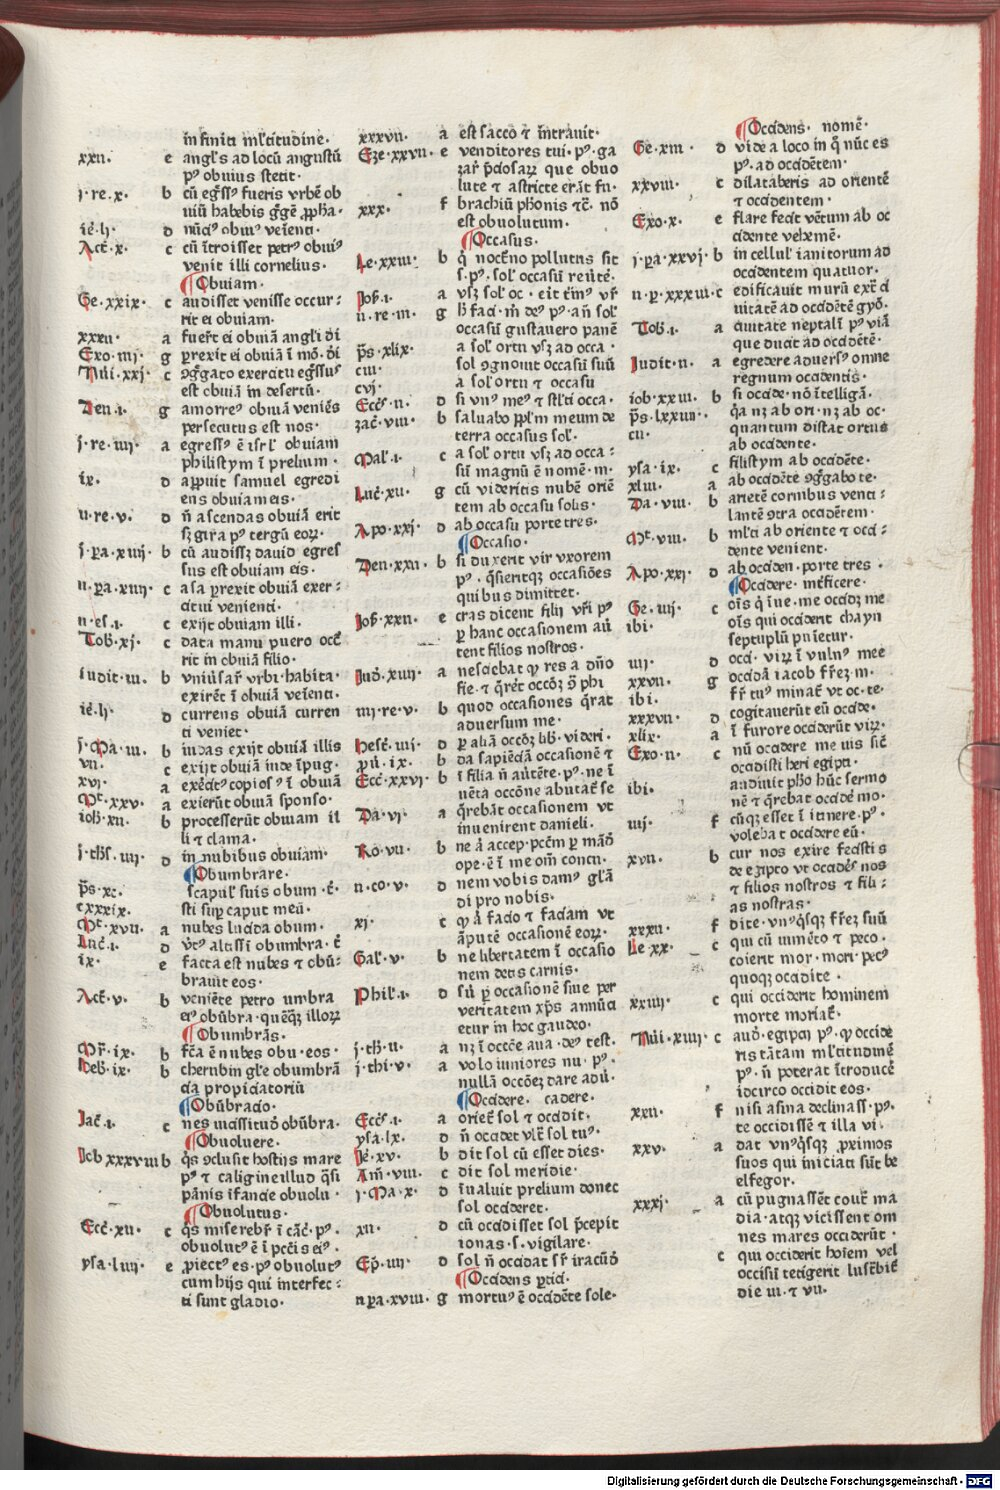 infinita ml̄titudine·
xxii· e angl's ad locū angustū
pꝰ obuius stetit·
j·re·x· b cū eg̃ssꝰ fueris vrbē ob
uiū habebis g̃gē ꝓph̄a·
iē·lj· d nūciꝰ obuiꝰ veīenti·
Act̄·x· c cū ītroisset petrꝰ obuiꝰ
venit illi cornelius·
Obuiam·
Ge·xxix· c audisset venisse occur:
rit ei obuiam·
xxxii· a fuer̄t ei obuiā angl'i d̄i
Exo·iiij· g ꝑrexit ei obuiā ī mō·d̄i
Nūi·xxj· c ꝯg̃gato exercitu eg̃ssus
est obuiā in desertū·
Den·i· g amorreꝰ obuiā veniēs
persecutus est nos·
j·re·iiij· a egressꝰ ē isrl' obuiam
philistijm ī prelium·
ix· d apꝑuit samuel egredi
ens obuiam eis·
ii·re·v· d n̄ ascendas obuiā erit
sꝫ gira pꝰ tergū eoꝝ·
j·ꝑa·xiiij· b cū audissꝫ dauid egres
sus est obuiam eis·
ii·ꝑa·xiiij· c asa ꝑrexit obuiā exer:
citui venienti·
ii·es·i· c exijt obuiam illi·
Tob·xj· c data manu puero occ̄
rit in obuiā filio·
iudit·iii· b vniūsar̄ vrbi·habita·
exirēt ī obuiā veīenti·
iē·lj· d currens obuiā curren
ti veniet·
j·Ma·iii· b iudas exijt obuiā illis
vii· c exijt obuiā inde īpug·
xvj· a exēcitꝰ copiosꝰ ī obuiā
Mt̄·xxv· a exierūt obuiā sponso·
ioh·xii· b processerūt obuiam il
li ⁊ clama·
j·th̄s·iiij· d in nubibus obuiam·
Obumbrare·
p̄s·xc· scapul' suis obum·t̄·
cxxxix· sti suꝑ caput meū·
Mt̄·xvii· a nubes lucida obum·
Luc̄·i· d v̄tꝰ altissi obumbra·t̄
ix· e facta est nubes ⁊ obū:
brauit eos·
Act̄·v· b veniēte petro umbra
eiꝰ obūbra·quēꝗ illoꝝ
Obumbrās·
Mr̄·ix· b fc̄a ē nubes obu·eos·
Heb·ix· b cherubin gl'e obumbrā
cia propiciatoriū
Obūbracio·
Jac̄·i· c nec vicissitudo obūbra·
Obuoluere·
Job xxxviii b q̄s ꝯclusit hostijs mare
pꝰ ⁊ caligine illud q̄si
pānis īfancie obuolu·
Obuolutus·
Ecc̄·xii· c q̄s miserebr̄ ī cāt̄·pꝰ·
obuolutꝰ ē ī pctīs eiꝰ·
ysa·liiij· e ꝓiectꝰ es·pꝰ obuolutꝰ
cum hijs qui interfec:
ti sunt gladio·
xxxvii· a est sacco ⁊ intrauit·
Eze·xxvii· e venditores tui·pꝰ·ga
zar̄ p̄ciosaꝝ que obuo
lute ⁊ astricte erāt fu·
xxx· f brachiū ph̄onis ⁊c̄· nō
est obuolutum·
Occasus·
Le·xxiii· b q̄ nocr̄no pollutus sit
s·pꝰ·sol' occasū reūtē·
Job·i· a vsꝫ sol' oc·eit t̄mꝰ vr̄
ii·re·iii· g h̄ fac̄·m̄ deꝰ pꝰ·an̄ sol'
occasū gustauero panē
p̄s·xlix· a sol' ortu vsꝫ ad occa·
ciii· sol ꝯgnouit occasū suū
cvj· a sol' ortu ⁊ occasu
Ecc̄s·ii· d si vnꝰ meꝰ ⁊ stl'ti occa·
zac̄·viii· b saluabo ppl'm meum de
terra occasus sol'·
Mal'·i· c a sol' ortu vsꝫ ad occa:
sū magnū ē nomē·m·
Luc̄·xii· g cū videritis nubē oriē
tem ab occasu solis·
Apo·xxj· d ab occasu porte tres·
Occasio·
Den·xxii· b si duxerit vir vxorem
pꝰ·q̄sieritqꝫ occasiōes
quibus dimittet·
Job·xxii· e cras dicent filij vr̄i pꝰ
ꝑ hanc occasionem au̇
tent filios nostros·
Jud·xiiij· a nesciebat ꝙ res a dn̄o
fie·⁊ q̄ret occōꝫ ꝯ̄ phi
iiij·re·v· b quod occasiones q̄rat
aduersum me·
Hest̄·iiij· d ꝑ aliā occōꝫ lib·videri·
ꝓū·ix· b da sapiēciā occasionē ⁊
Ecc̄·xxvj· b ī filia n̄ au̇tēte·pꝰ·ne ī
uēta occōne abutat̄ se
Da·vj· a q̄rebāt occasionem vt
inuenirent danieli·
Ro·vii· b ne ā accep·pctm̄ ꝑ mād̄
ope·ē ī me om̄ concu·
ii·co·v· d nem vobis damꝰ gl'ā
di pro nobis·
xj· c ꝙ ā facio ⁊ faciam vt
āputē occasionē eoꝝ·
Gal'·v· b ne libertatem ī occasio
nem detis carnis·
Phil'·i· d siū ꝑ occasionē siue per
veritatem xp̄s annūci
etur in hoc gaudeo·
j·th̄·ii· a nꝫ ī occc̄e aua·deꝰ test·
j·thi·v· a volo iuniores nu·pꝰ·
nullā occōeꝫ dare adu̇·
Occidere· cadere·
Ecc̄s·i· a oriet̄ sol ⁊ occidit·
ysa·lx· d n̄ occidet vlt̄ sol tuꝰ·
Je·xv· b dit sol cū esset dies·
Am̄·viii· c dit sol meridie·
j·Ma·x· d īualuit prelium donec
sol occideret·
xii· d cū occidisset sol p̄cepit
ionas·s·vigilare·
Ep̄·iiij· d sol n̄ occidat sr̄ iracūd̄
Occidens ꝑtici·
ii ꝑa·xviii· g mortuꝰ ē occidēte sole·
Occidens· nomē·
Ge·xiii· d vide a loco in q̄ nūc es
pꝰ·ad occidētem·
xxviii· c dilataberis ad orientē
⁊ occidentem·
Exo·x· e flare fecit vētum ab oc
cidente vehemē·
j·ꝑa·xxvj· b in cellul' ianitorum ad
occidentem quatuor·
ii·ꝑ·xxxiii·c edificauit murū exr̄ ci
uitatē ad occidētē gyō·
Tob·i· a ciuitate neptali ī pꝰ viā
que ducit ad occidētē·
Judit·ii· a egredere aduersꝰ omne
regnum occidentis·
iob·xxiii· b si occidē·nō ītelligā·
p̄s·lxxiiii· q̄a nꝫ ab ori·nꝫ ab oc·
cii· quantum distat ortus
ab occidente·
ysa·ix· c filistijm ab occidēte·
xliii· a ab occidēte ꝯg̃gabo te·
Da·viii· b arietē cornibus venti:
lantē ꝯtra occidētem·
Mt̄·viii· b ml̄ti ab oriente ⁊ occi:
dente venient·
Apo·xxj· d ab occiden·porte tres·
Occidere·int̄ficere·
Ge·iiij· c oīs q̄ īue·me occidꝫ me
ibi· oīs qui occiderit chayn
septuplū puīetur·
iiij· d occi·viꝝ ī vulnꝰ mee
xxvii· g occidā iacob fr̄eꝫ m·
ibi· fr̄ tuꝰ minat̄ vt oc·te·
xxxvii· d cogitauerūt eū occide·
xlix· a ī furore occiderūt viꝝ·
Exo·ii· c nū occidere me uis sic̄
occidisti heri egipti·
ibi· audiuit pho hūc sermo
nē ⁊ q̄rebat occidē mo·
iiij· f cūqꝫ esset ī itinere·pꝰ·
volebat occidere eū·
xvii· b cur nos exire fecisti s
de egipto vt occidēs nos
⁊ filios nostros ⁊ fili:
as nostras·
xxxii· f dite·vnꝰqꝫ fr̄eꝫ suū
Le·xx· c qui cū iumēto ⁊ peco·
coierit mor·mori·pecꝰ
quoqꝫ occidite·
xxiiij· c qui occiderit hominem
morte moriat̄·
Nūi·xiiij· c aud·egipcij pꝰ·ꝙ occide
ris tātam ml̄titudinē
pꝰ·n̄ poterat ītroducē
idcirco occidit eos·
xxii· f nisi asina declinass·pꝰ·
te occidissē ⁊ illa vi·
xxv· a dat vnꝰqꝫ proximos
suos qui iniciati sūt be
elfegor·
xxxj· a cū pugnassēt cont̄ ma
dia·atqꝫ vicissent om
nes mares occiderūt·
c qui occiderit hoīem vel
occisū tetigerit lustrabit̄
die iii·⁊ vii·
Digitalisierung gefördert durch die Deutsche Forschungsgemeinschaft - DFG